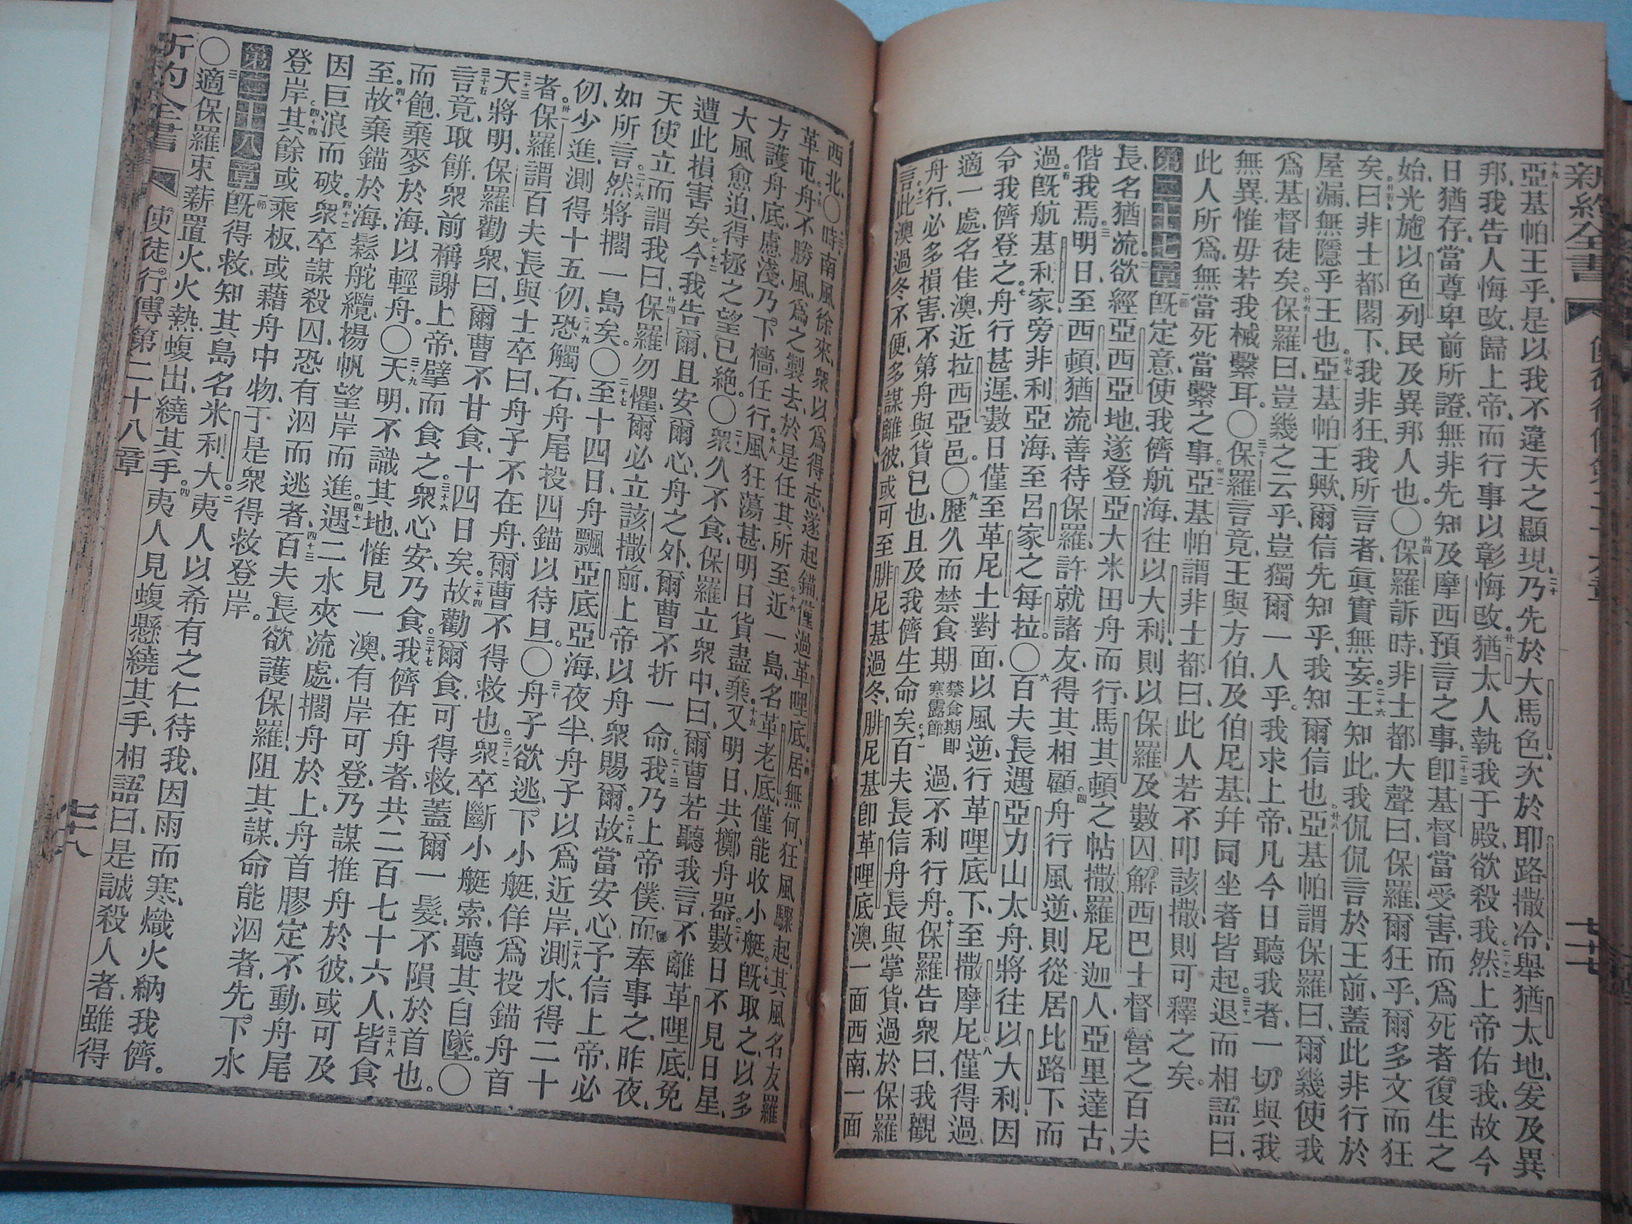 新約全書
亞基帕王乎、是以我不違天之顯現、乃先於大馬色、次於耶路撒冷、舉猶太地、爰及異
邦、我告人悔改、歸上帝、而行事以彰悔改、猶太人執我于殿、欲殺我、然上帝佑我、故今
日猶存、當尊卑前所證、無非先知及摩西預言之事、卽基督當受害、而爲死者復生之
始、光施以色列民、及異邦人也。〇保羅訴時、非士都大聲曰、保羅爾狂乎、爾多文而狂
矣、曰、非士都閣下、我非狂、我所言者、眞實無妄、王知此、我侃侃言於王前、蓋此非行於
屋漏、無隱乎王也、亞基帕王歟、爾信先知乎、我知爾信也、亞基帕謂保羅曰、爾幾使我
爲基督徒矣、保羅曰、豈幾之云乎、豈獨爾一人乎、我求上帝、凡今日聽我者、一切與我
無異、惟毋若我械繫耳。〇保羅言竟、王與方伯、及伯尼基、幷同坐者皆起、退而相語曰、
此人所爲、無當死當繫之事、亞基帕謂非士都曰、此人若不叩該撒、則可釋之矣。
第二十七章 旣定意使我儕航海、往以大利、則以保羅及數囚、解西巴士督營之百夫
長、名猶流、欲經亞西亞地、遂登亞大米田舟而行、馬其頓之帖撒羅尼迦人亞里達古、
偕我焉、明日至西頓、猶流善待保羅、許就諸友、得其相顧、舟行風逆、則從居比路下而
過、旣航基利家旁非利亞海、至呂家之每拉。〇百夫長遇亞力山太舟、將往以大利、因
令我儕登之、舟行甚遲、數日僅至革尼土對面、以風逆、行革哩底下、至撒摩尼、僅得過、
適一處、名佳澳、近拉西亞邑。〇歷久而禁食期禁食期即寒露節過、不利行舟、保羅告衆曰、我觀
舟行、必多損害、不第舟與貨已也、且及我儕生命矣、百夫長信舟長與掌貨、過於保羅
言、此澳過冬不便、多謀離彼、或可至腓尼基過冬、腓尼基卽革哩底澳、一面西南、一面
西北、〇時南風徐來、衆以爲得志、遂起錨、僅過革哩底、居無何、狂風驟起、其風名友羅
革屯、舟不勝風、爲之製去、於是任其所至、近一島、名革老底、僅能收小艇、旣取之、以多
方護舟底、慮淺、乃下檣任行、風狂蕩甚、明日貨盡棄、又明日共擲舟器、數日不見日星、
大風愈迫、得拯之望已絕。〇衆久不食、保羅立衆中曰、爾曹若聽我言、不離革哩底、免
遭此損害矣、今我告爾、且安爾心、舟之外、爾曹不折一命、我乃上帝僕、而奉事之、昨夜、
天使立而謂我曰、保羅勿懼、爾必立該撒前、上帝以舟衆賜爾、故當安心、予信上帝必
如所言、然將擱一島矣。〇至十四日、舟飄亞底亞海、夜半舟子以爲近岸、測水得二十
仞、少進、測得十五仞、恐觸石、舟尾投四錨、以待旦。〇舟子欲逃、下小艇、佯爲投錨舟首
者、保羅謂百夫長與士卒曰、舟子不在舟、爾曹不得救也、衆卒斷小艇索、聽其自墜。〇
天將明、保羅勸衆曰、爾曹不甘食十四日矣、故勸爾食、可得救、蓋爾一髮、不隕於首也。
言竟、取餅、衆前稱謝上帝、擘而食之、衆心安乃食、我儕在舟者、共二百七十六人、皆食
而飽、棄麥於海以輕舟。〇天明不識其地、惟見一澳、有岸可登、乃謀推舟於彼、或可及
至、故棄錨於海、鬆舵纜、揚帆望岸而進、遇二水夾流處、擱舟於上、舟首膠定不動、舟尾
因巨浪而破、衆卒謀殺囚、恐有泅而逃者、百夫長欲護保羅、阻其謀、命能泅者、先下水
登岸、其餘或乘板、或藉舟中物、于是衆得救登岸。
第二十八章 旣得救、知其島名米利大、夷人以希有之仁待我、因雨而寒、熾火納我儕。
〇適保羅束薪置火、火熱蝮出、繞其手、夷人見蝮懸繞其手、相語曰、是誠殺人者、雖得
新約全書 使徒行傳第二十八章